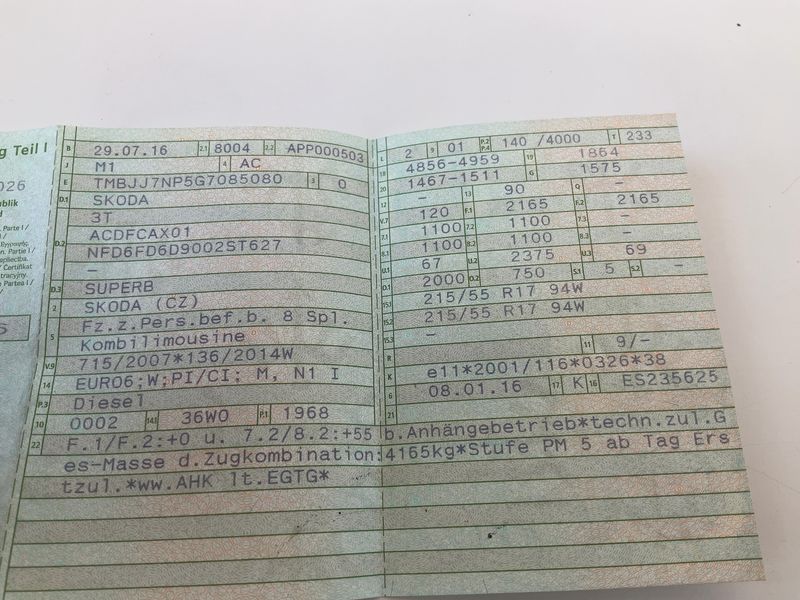 g Teil I
026
B 29.07.16 2.1 8004 2.2 APP000503
J M1 4 AC
E TMBJJ7NP5G7085080 3 0
D.1 SKODA
3T
D.2 ACDFCAX01
NFD6FD6D9002ST627
–
D.3 SUPERB
2 SKODA (CZ)
5 Fz.z.Pers.bef.b. 8 Spl.
Kombilimousine
V.9 715/2007*136/2014W
14 EURO6;W;PI/CI; M, N1 I
P.3 Diesel
10 0002 14.1 36W0 P.1 1968
L 2 9 01 P.2 P.4 140 /4000 T 233
18 4856-4959 19 1864
20 1467-1511 G 1575
12 – 13 90 Q –
V.7 120 F.1 2165 F.2 2165
7.1 1100 7.2 1100 7.3 –
8.1 1100 8.2 1100 8.3 –
U.1 67 U.2 2375 U.3 69
O.1 2000 O.2 750 S.1 5 S.2 –
15.1 215/55 R17 94W
15.2 215/55 R17 94W
15.3 –
R 11 9/-
K e11*2001/116*0326*38
6 08.01.16 17 K 16 ES235625
21
22 F.1/F.2:+0 u. 7.2/8.2:+55 b.Anhängebetrieb*techn.zul.G
es-Masse d.Zugkombination:4165kg*Stufe PM 5 ab Tag Ers
tzul.*ww.AHK lt.EGTG*